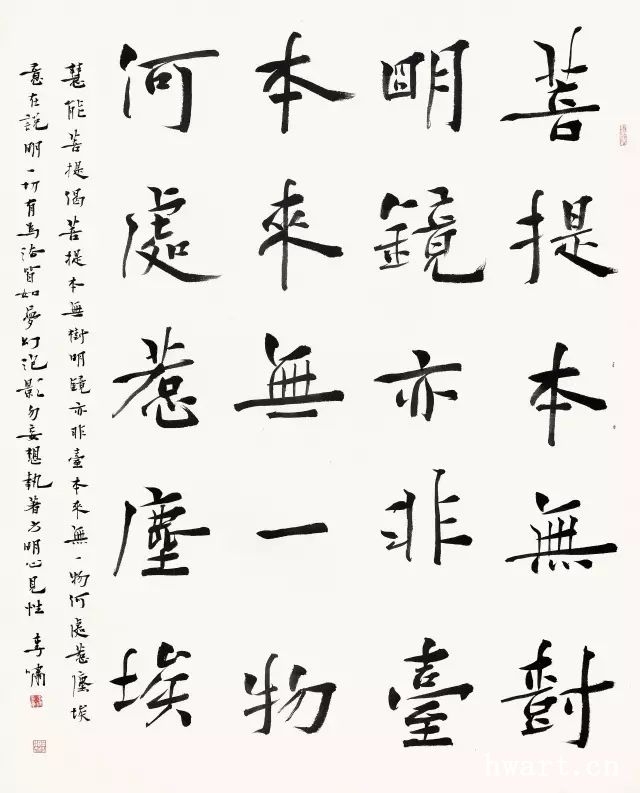 菩提本無樹
明鏡亦非臺
本來無一物
何處惹塵埃
慧能菩提偈菩提本無樹明鏡亦非臺本來無一物何處惹塵埃
意在說明一切有為法皆如夢幻泡影勿妄想執著方明心見性 李嘯
hwart.cn